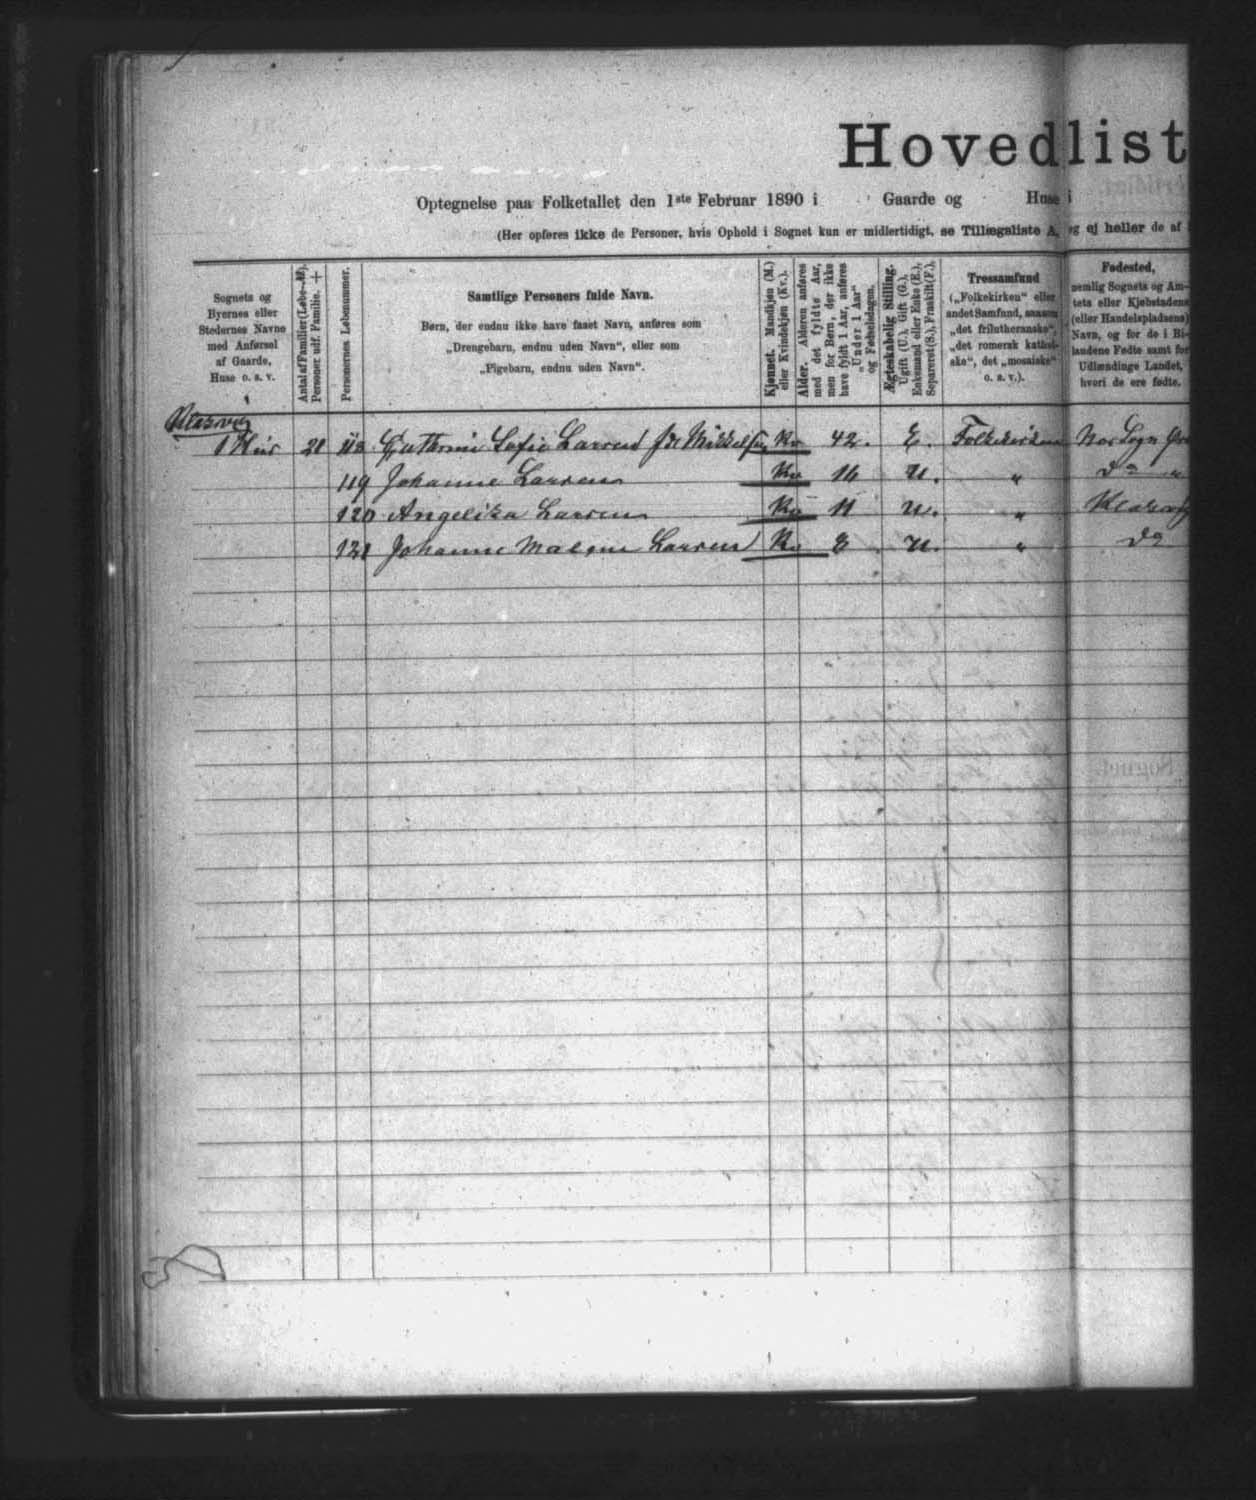 Hovedlist
Optegnelse paa Folketallet den 1ste Februar 1890 i Gaarde og Huse i
(Her opføres ikke de Personer, hvis Ophold i Sognet kun er midlertidigt, se Tillægsliste A, og ej heller de af
Sognets og
Byernes eller
Stedernes Navne
med Anførsel
af Gaarde,
Huse o. s. v.
Antal af Familier
Personer udf. Familie. +
Personernes Løbenummer.
Samtlige Personers fulde Navn.
Børn, der endnu ikke have faaet Navn, anføres som
„Drengebarn, endnu uden Navn“, eller som
„Pigebarn, endnu uden Navn“.
Kjønnet. Mandkjøn (M.)
eller Kvindekjøn (Kv.).
Alder. Alderen anføres
med det fyldte Aar,
men for Børn, der ikke
have fyldt 1 Aar, anføres
„Under 1 Aar“
og Fødselsdagen.
Ægteskabelig Stilling.
Ugift (U.), Gift (G.),
Enkemand eller Enke (E.),
Separeret (S.), Fraskilt (F.),
Trossamfund
(„Folkekirken“ eller
andet Samfund, saasom
„det frilutheranske“,
„det romersk kathol-
ske“, det „mosaiske“
o. s. v.).
Fødested,
nemlig Sognets og Am-
tets eller Kjøbstadens
(eller Handelspladsens)
Navn, og for de i Bi-
landene Fødte samt for
Udlændinge Landet,
hvori de ere fødte.
1 Hus 21 118 Cathrine Sofie Larsen fdt Mikkelsen Kv 42. E. Folkekirken Nors Sogn
119 Johanne Larsen Kv 16 U. „ Do „
120 Angelika Larsen Kv 11 U. „
121 Johanne Larsen Kv 8 U. „ Do